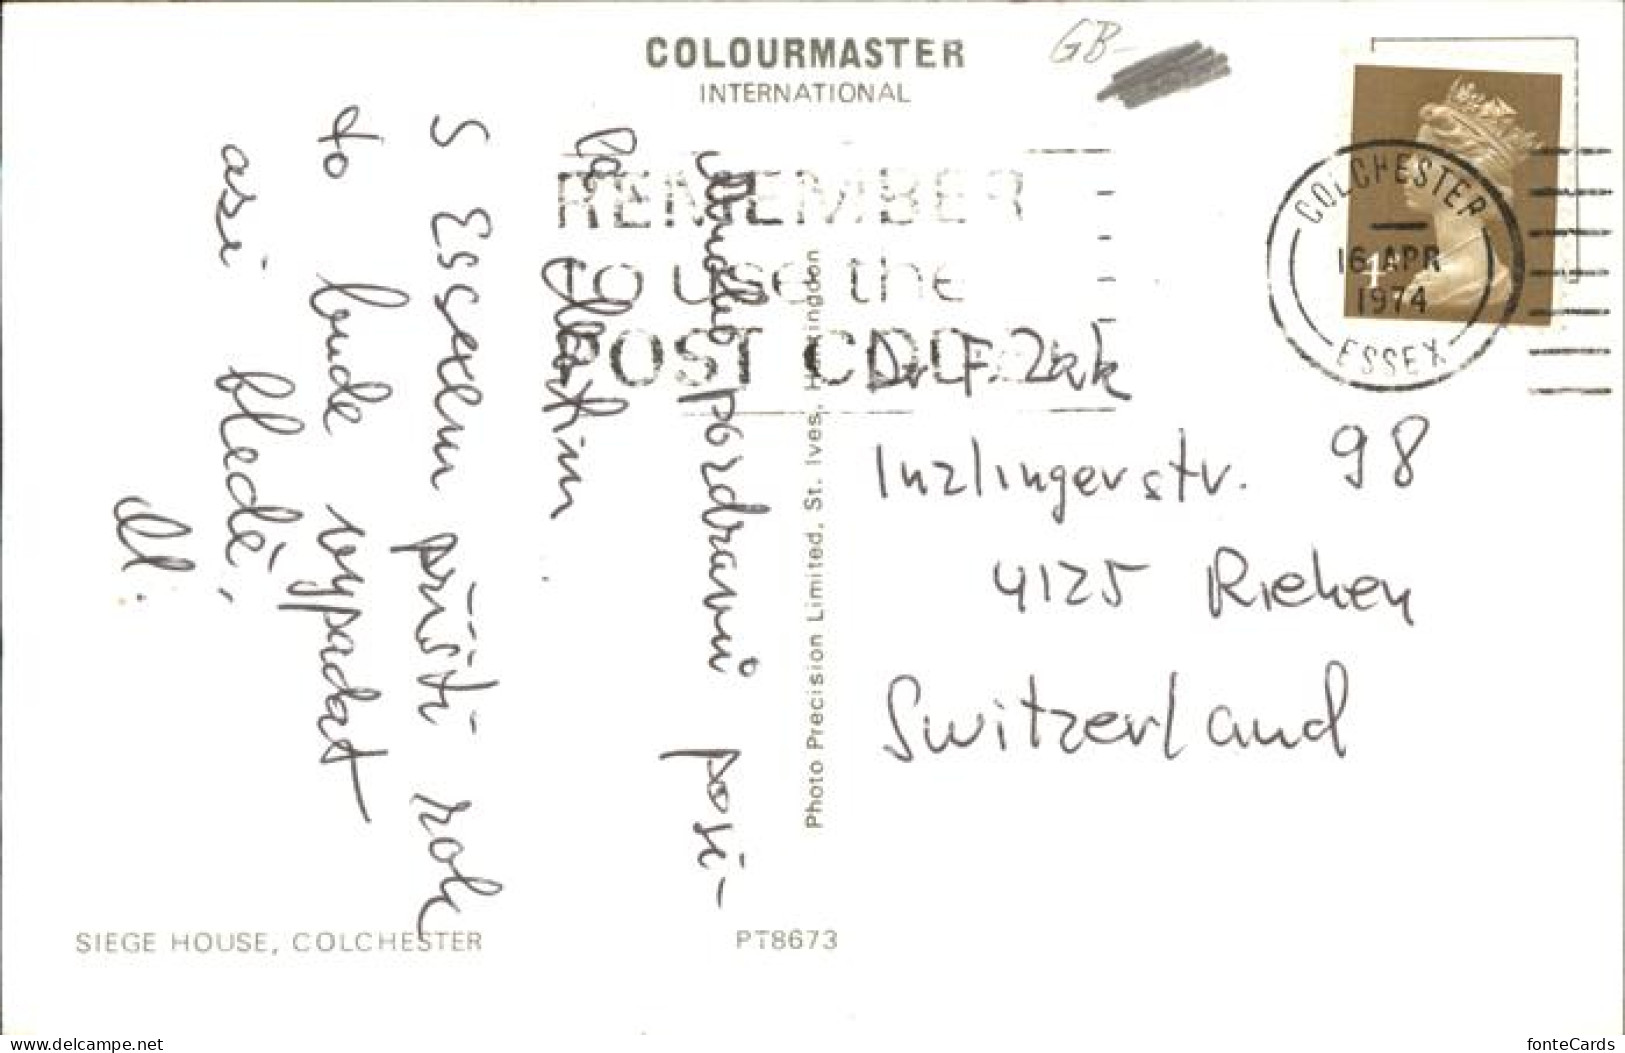 COLOURMASTER
INTERNATIONAL
GB
COLCHESTER
16 APR
1974
ESSEX
REMEMBER
to use the
POST CODE
mnoho pozdravů posí-
lá Martin.
S Essexem příští rok
to bude vypadat
asi bledě,
M.
Dr F. Zak
Inzlingerstr. 98
4125 Riehen
Switzerland
Photo Precision Limited, St. Ives, Huntingdon
SIEGE HOUSE, COLCHESTER
PT8673
delcampe.net
fonteCards